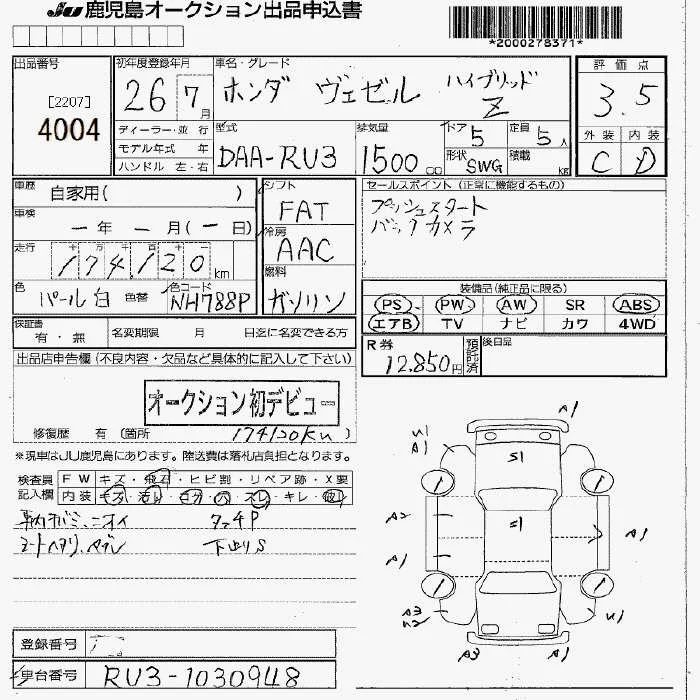 JU 鹿児島オークション出品申込書
*2000278371*
出品番号
[2207]
4004
初年度登録年月
26 7 月
車名・グレード
ホンダ ヴェゼル ハイブリッド Z
評価点
3.5
外装 内装
C D
ディーラー・並 行
モデル年式 年
ハンドル 左・右
型式
DAA-RU3
排気量
1500 cc
ドア 5
定員 5 人
形状 SWG
積載 kg
車歴 自家用( )
車検 ー年 ー月(ー日)
走行 十 万 千 百 十
174,120 km
色 パール白 色替
色コード NH788P
シフト
FAT
冷房
AAC
燃料
ガソリン
セールスポイント (正常に機能するもの)
プッシュスタート
バックカメラ
装備品(純正品に限る)
PS PW AW SR ABS
エアB TV ナビ カワ 4WD
保証書 有・無
名変期限 月 日迄に名変できる方
R券 12,850円
預託済
後日品
出品店申告欄 (不良内容・欠品など具体的に記入して下さい)
オークション初デビュー
修復歴 有 (箇所 174120Km )
※現車はJU鹿児島にあります。陸送費は落札店負担となります。
検査員記入欄
FW キズ・飛石・ヒビ割・リペア跡・X要
内装 キズ・汚レ・コゲ・穴・スレ・キレ・破レ
下廻りS
A1
U1
A1
S1
S1
A2
A1
A1
A3
U2
U1
A3
A1
登録番号
車台番号 RU3-1030948